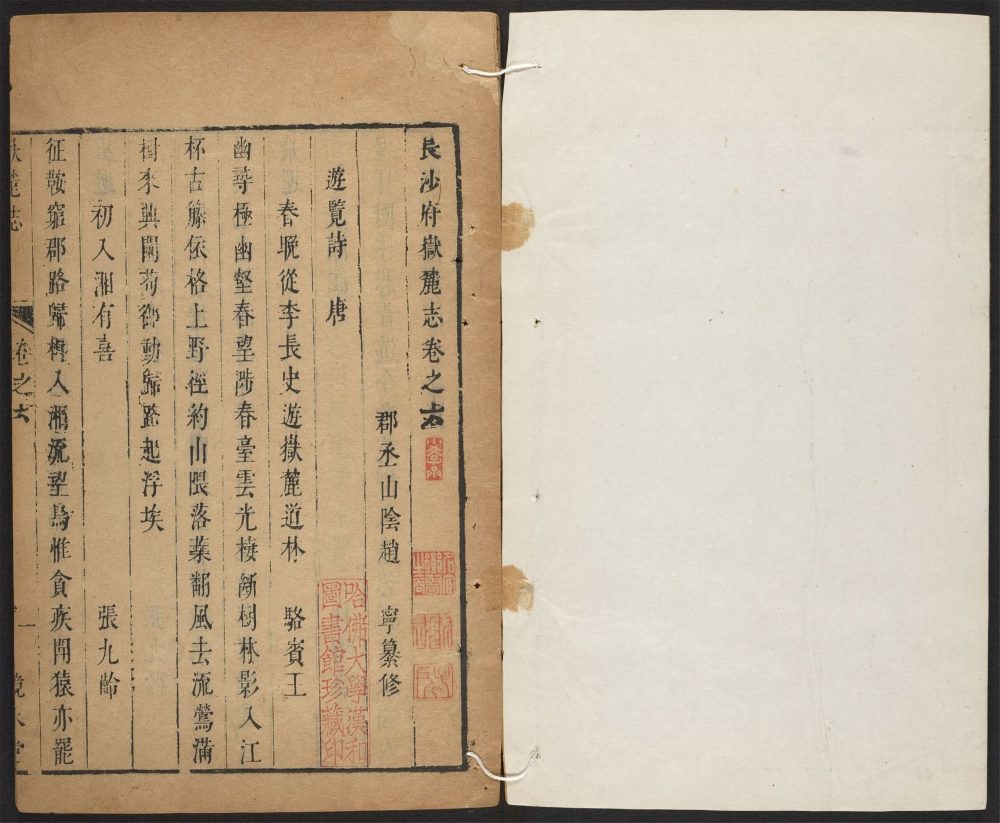 長沙府嶽麓志卷之六
郡丞山陰趙　寧纂修
遊覽詩　唐
春晚從李長史遊嶽麓道林　駱賓王
幽尋極幽壑春望涉春臺雲光棲斷樹林影入江
杯古籐依格上野徑約山隈落葉翻風去流鶯滿
樹來興闌荀御動歸路起浮埃
初入湘有喜　張九齡
征鞍窮郡路歸檝入湘流望鳥惟貪疾聞猿亦罷
麓志　卷之六　一　鏡水堂
哈佛大學漢和
圖書館珍藏印